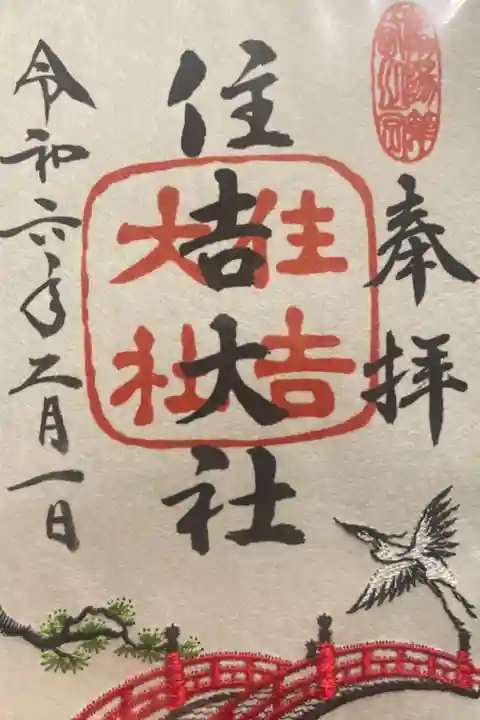 奉拝
住吉大社
住吉大社
令和六年二月一日